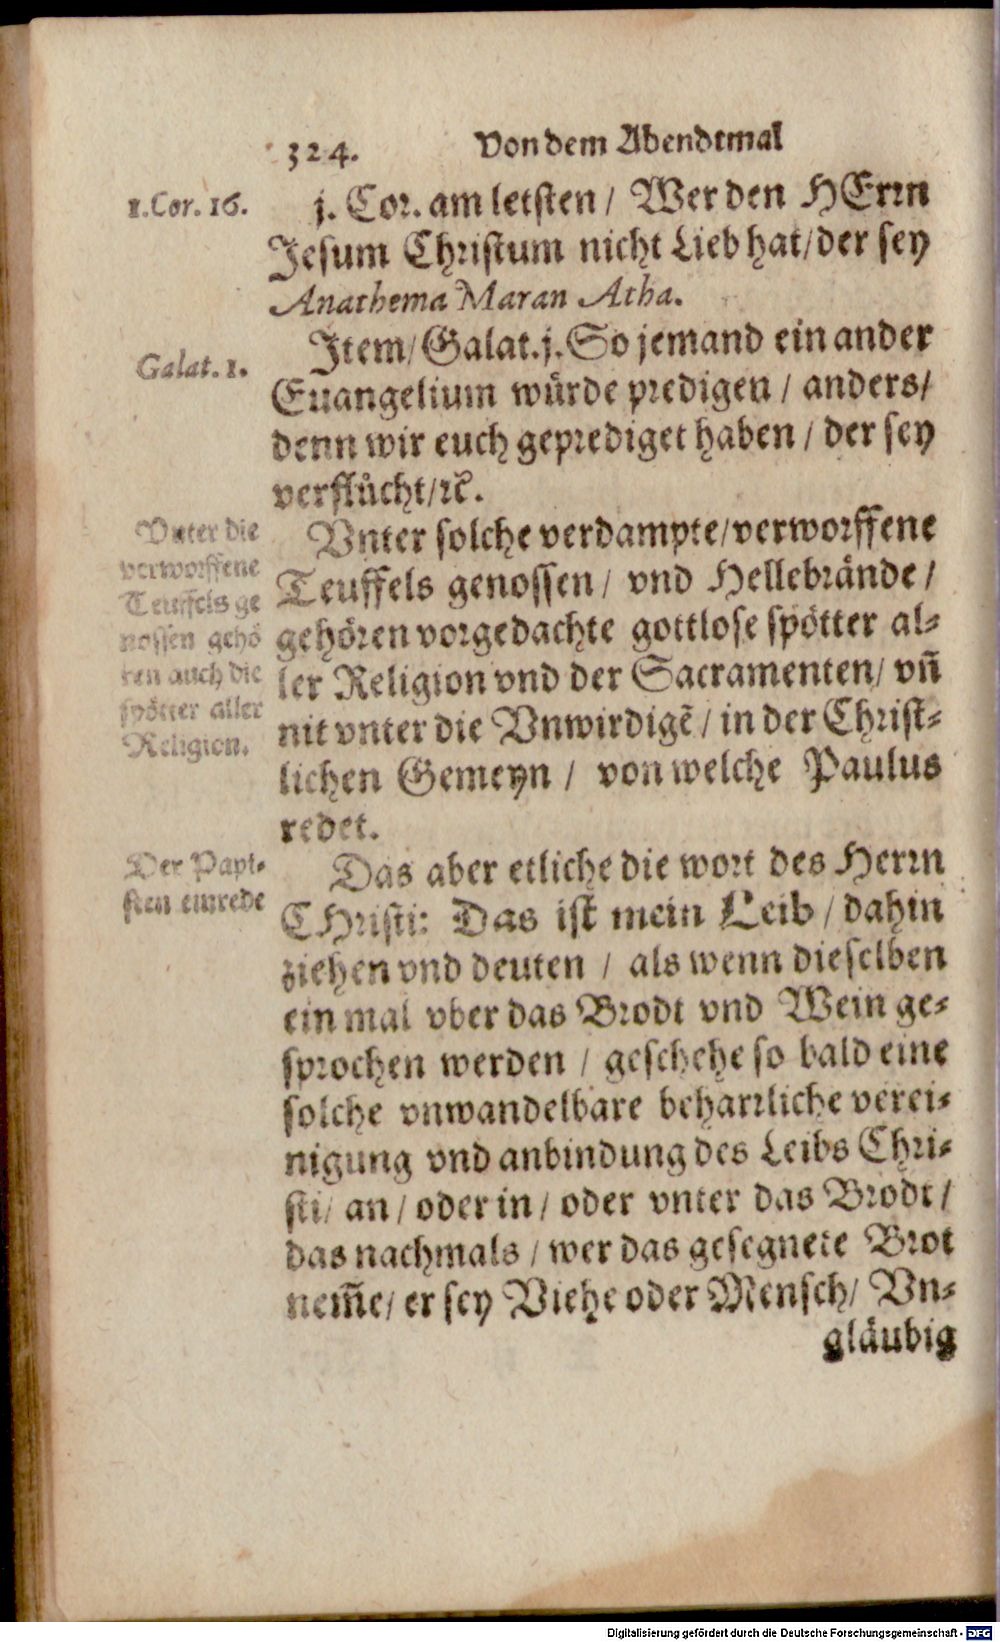 324. Von dem Abendtmal
1.Cor. 16.
j. Cor. am letsten / Wer den HErrn
Jesum Christum nicht Lieb hat/der sey
Anathema Maran Atha.
Galat. 1.
Item/Galat.j. So jemand ein ander
Euangelium würde predigen / anders/
denn wir euch geprediget haben / der sey
verflůcht/ꝛc̃.
Vnter die
verworffene
Teuffels ge
nossen gehö
ren auch die
spötter aller
Religion.
Vnter solche verdampte/verworffene
Teuffels genossen/ vnd Hellebrände /
gehören vorgedachte gottlose spötter al-
ler Religion vnd der Sacramenten/ vñ
nit vnter die Vnwirdigẽ / in der Christ-
lichen Gemeyn / von welche Paulus
redet.
Der Papi-
sten einrede
Das aber etliche die wort des Herrn
CHristi: Das ist mein Leib / dahin
ziehen vnd deuten / als wenn dieselben
ein mal vber das Brodt vnd Wein ge-
sprochen werden / geschehe so bald eine
solche vnwandelbare beharrliche verei-
nigung vnd anbindung des Leibs Chri-
sti/ an / oder in / oder vnter das Brodt /
das nachmals / wer das gesegnete Brot
nem̃e/ er sey Viehe oder Mensch/ Vn-
gläubig
Digitalisierung gefördert durch die Deutsche Forschungsgemeinschaft - DFG